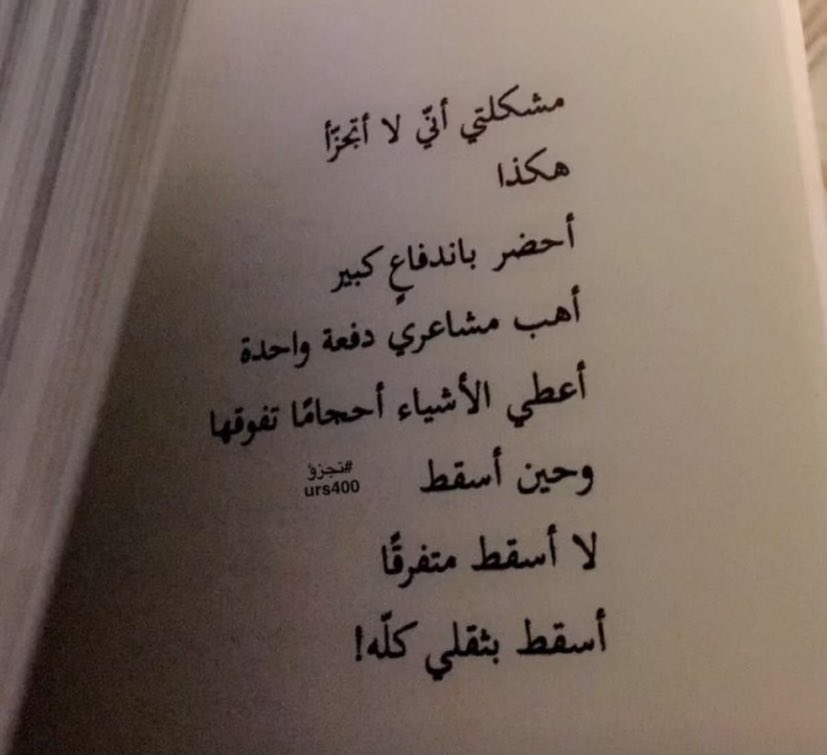 مشكلتي أنيّ لا أتجزّأ
هكذا
أحضر باندفاعٍ كبير
أهب مشاعري دفعة واحدة
أعطي الأشياء أحجامًا تفوقها
وحين أسقط
#تجزؤ
urs400
لا أسقط متفرقًا
أسقط بثقلي كلّه!